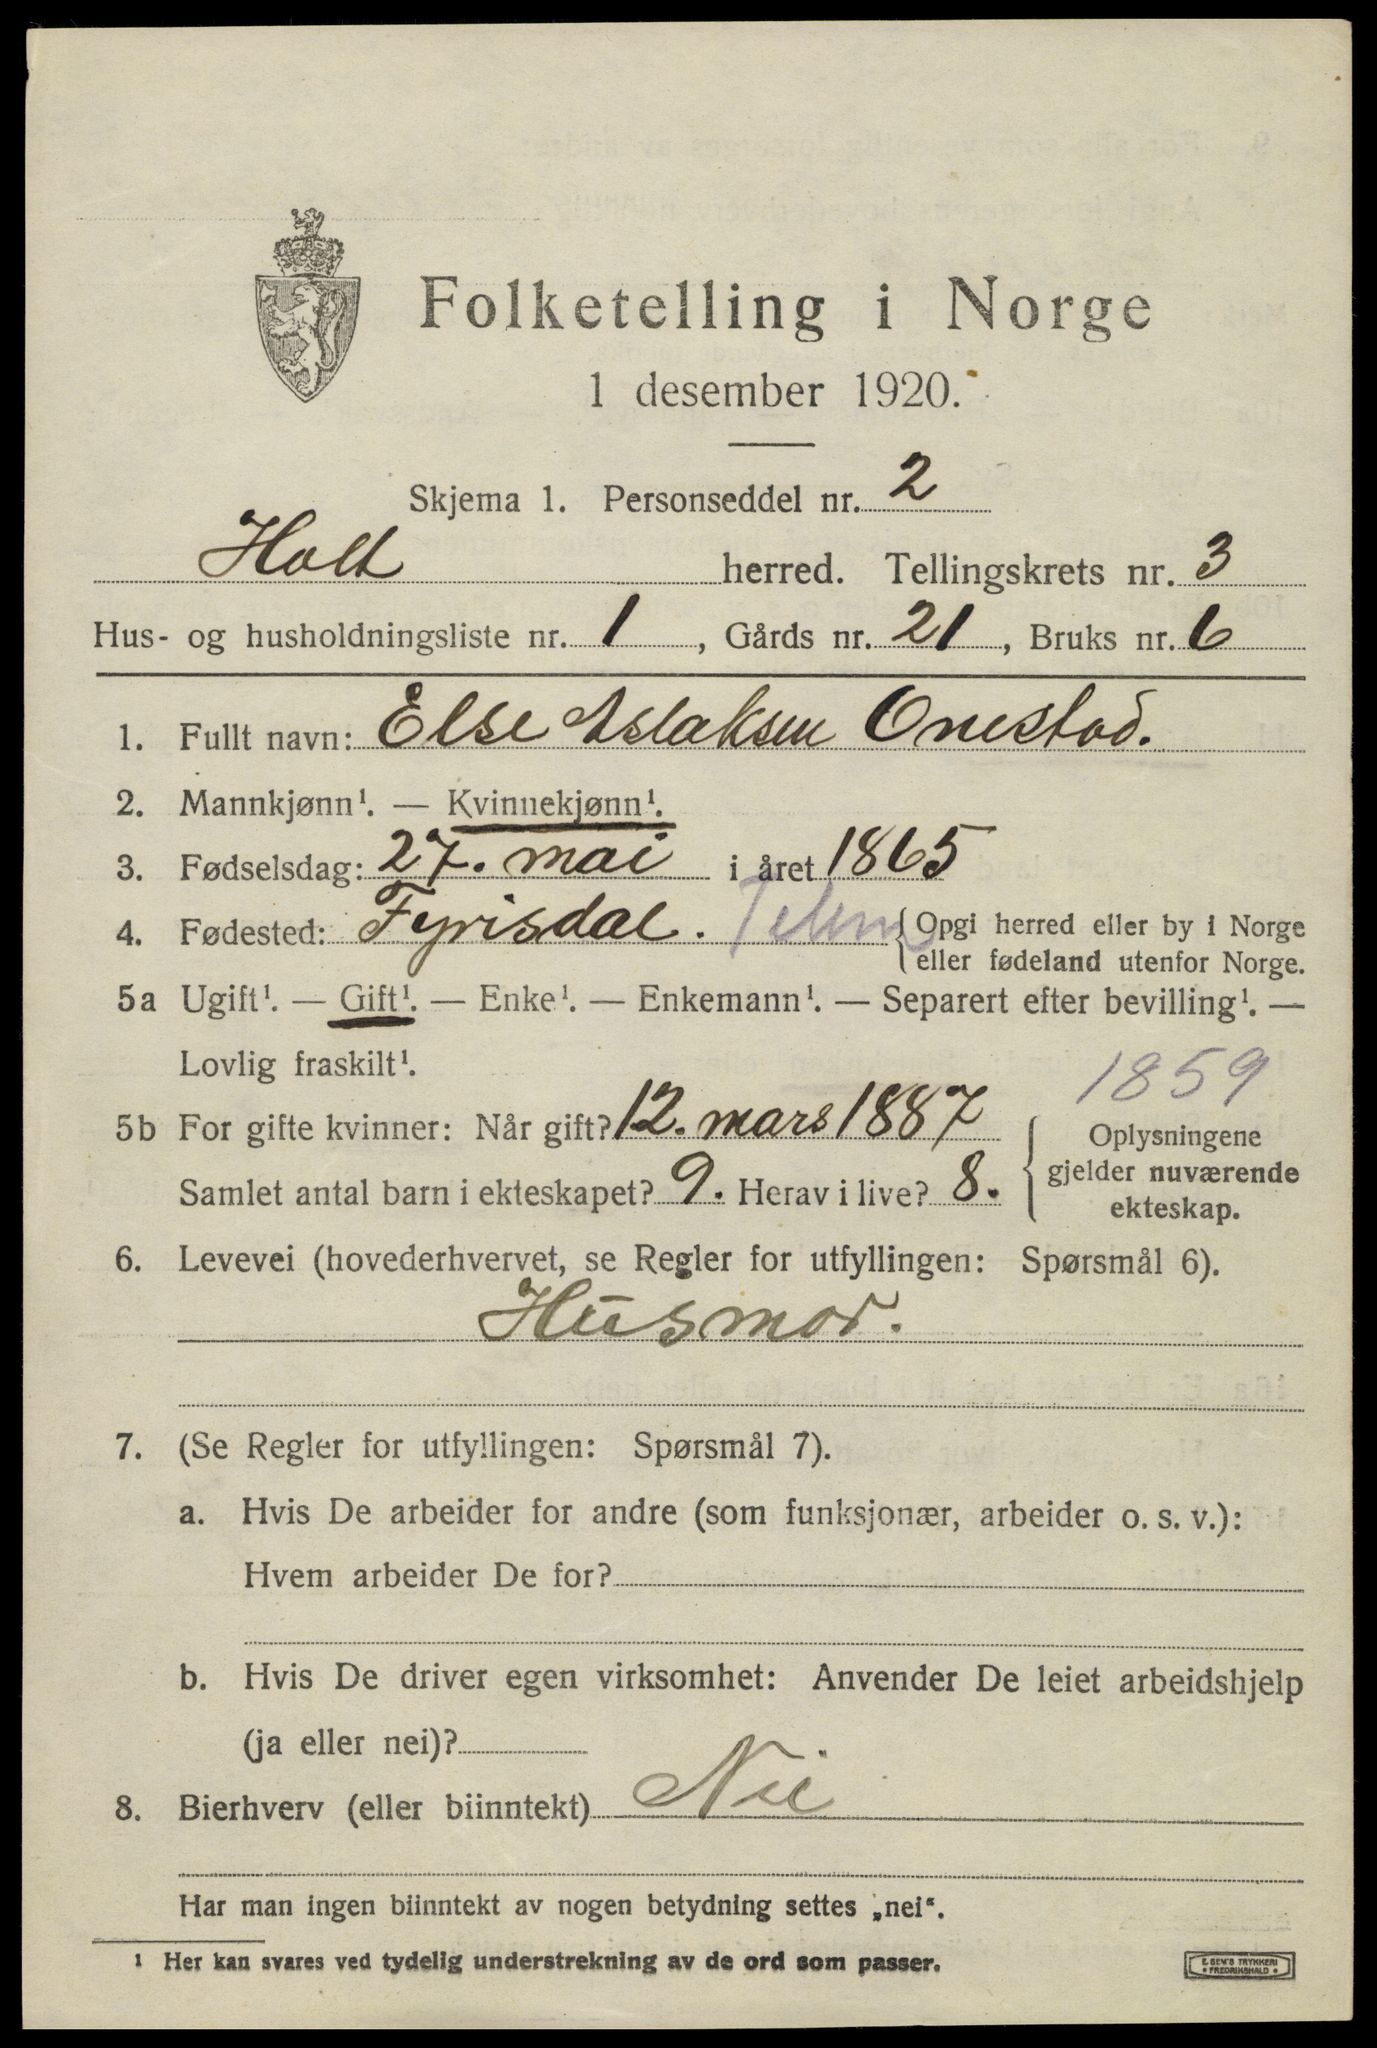 Folketelling i Norge
1 desember 1920.
Skjema 1. Personseddel nr. 2
Holt herred. Tellingskrets nr. 3
Hus- og husholdningsliste nr. 1, Gårds nr. 21, Bruks nr. 6
1. Fullt navn: Else Aslaksen Onestad.
2. Mannkjønn¹. — Kvinnekjønn¹.
3. Fødselsdag: 27. mai i året 1865
4. Fødested: Fyrisdal. Telem {Opgi herred eller by i Norge
eller fødeland utenfor Norge.
5a Ugift¹. — Gift¹. — Enke¹. — Enkemann¹. — Separert efter bevilling¹. —
Lovlig fraskilt¹.
1859
5b For gifte kvinner: Når gift? 12. mars 1887
Samlet antal barn i ekteskapet? 9. Herav i live? 8.
Oplysningene
gjelder nuværende
ekteskap.
6. Levevei (hovederhvervet, se Regler for utfyllingen: Spørsmål 6).
Husmor.
7. (Se Regler for utfyllingen: Spørsmål 7).
a. Hvis De arbeider for andre (som funksjonær, arbeider o. s. v.):
Hvem arbeider De for?
b. Hvis De driver egen virksomhet: Anvender De leiet arbeidshjelp
(ja eller nei)?
8. Bierhverv (eller biinntekt) Nei
Har man ingen biinntekt av nogen betydning settes „nei“.
¹ Her kan svares ved tydelig understrekning av de ord som passer.
E. SEM'S TRYKKERI
FREDRIKSHALD